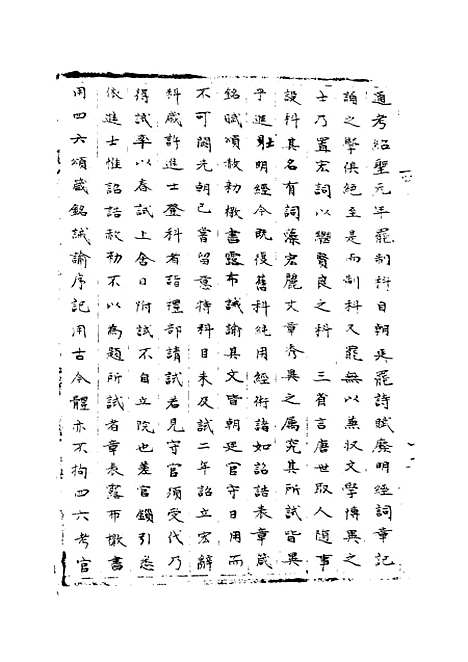 通考紹聖元年罷制科自朝廷罷詩賦廢明經詞章記
誦之學俱絕至是而制科又罷無以兼收文學博異之
士乃置宏詞以繼賢良之科　三省言唐世取人隨事
設科其名有詞藻宏麗文章秀異之屬究其所試皆異
乎進士明經今既復舊科純用經術諸如詔誥表章箴
銘賦頌赦勑檄書露布誡諭其文皆朝廷官守日用而
不可闕先朝已嘗留意特科目未及試二年詔立宏辭
科歲許進士登科者詣禮部請試若見守官須受代乃
得試率以春試上舍日附試不自立院也差官鎖引悉
依進士惟詔誥赦勑不以為題所試者章表露布檄書
用四六頌箴銘誡諭序記用古今體亦不拘四六考官